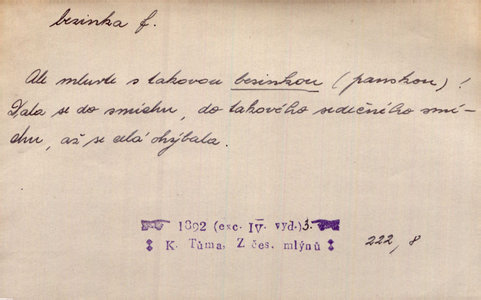 besinka f.
Ale mluvte s takovou besinkou (panskou)!
Dala se do smíchu, do takového srdečného smí-
chu, až se celá ohýbala.
1892 (exc. IV. vyd.) 3.
K. Tůma, Z čes. mlýnů
222, 8